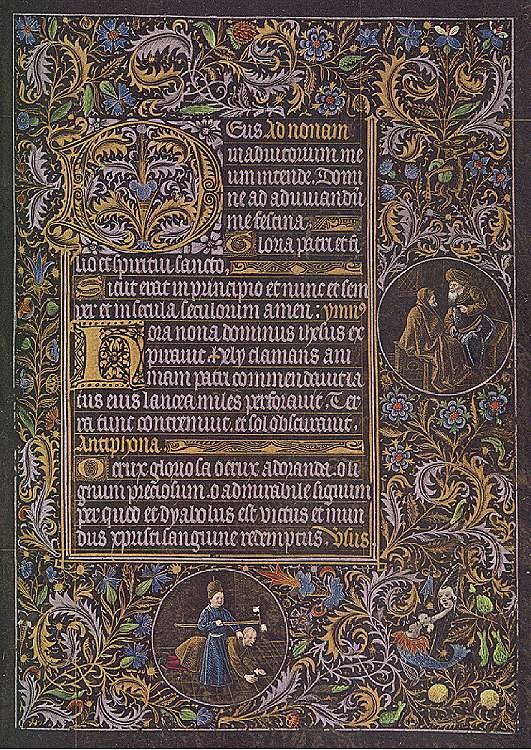 Deus Ad nonam
in adiutorium me
um intende. Domi
ne ad adiuuandū
me festina.
Gloria patri et fi
lio et spiritui sancto.
Sicut erat in principio et nunc et sem
per et in secula seculorum amen: ymnꝰ
Hora nona dominus ihesus ex
pirauit hely clamans ani
mam patri commendauit la
tus eius lancea miles perforauit. Ter
ra tunc contremuit et sol obscurauit.
Antiphona.
O crux gloriosa o crux adoranda. o li
gnum preciosum. o admirabile signum
per quod et dyabolus est victus et mun
dus xpristi sanguine redemptus. Vsus